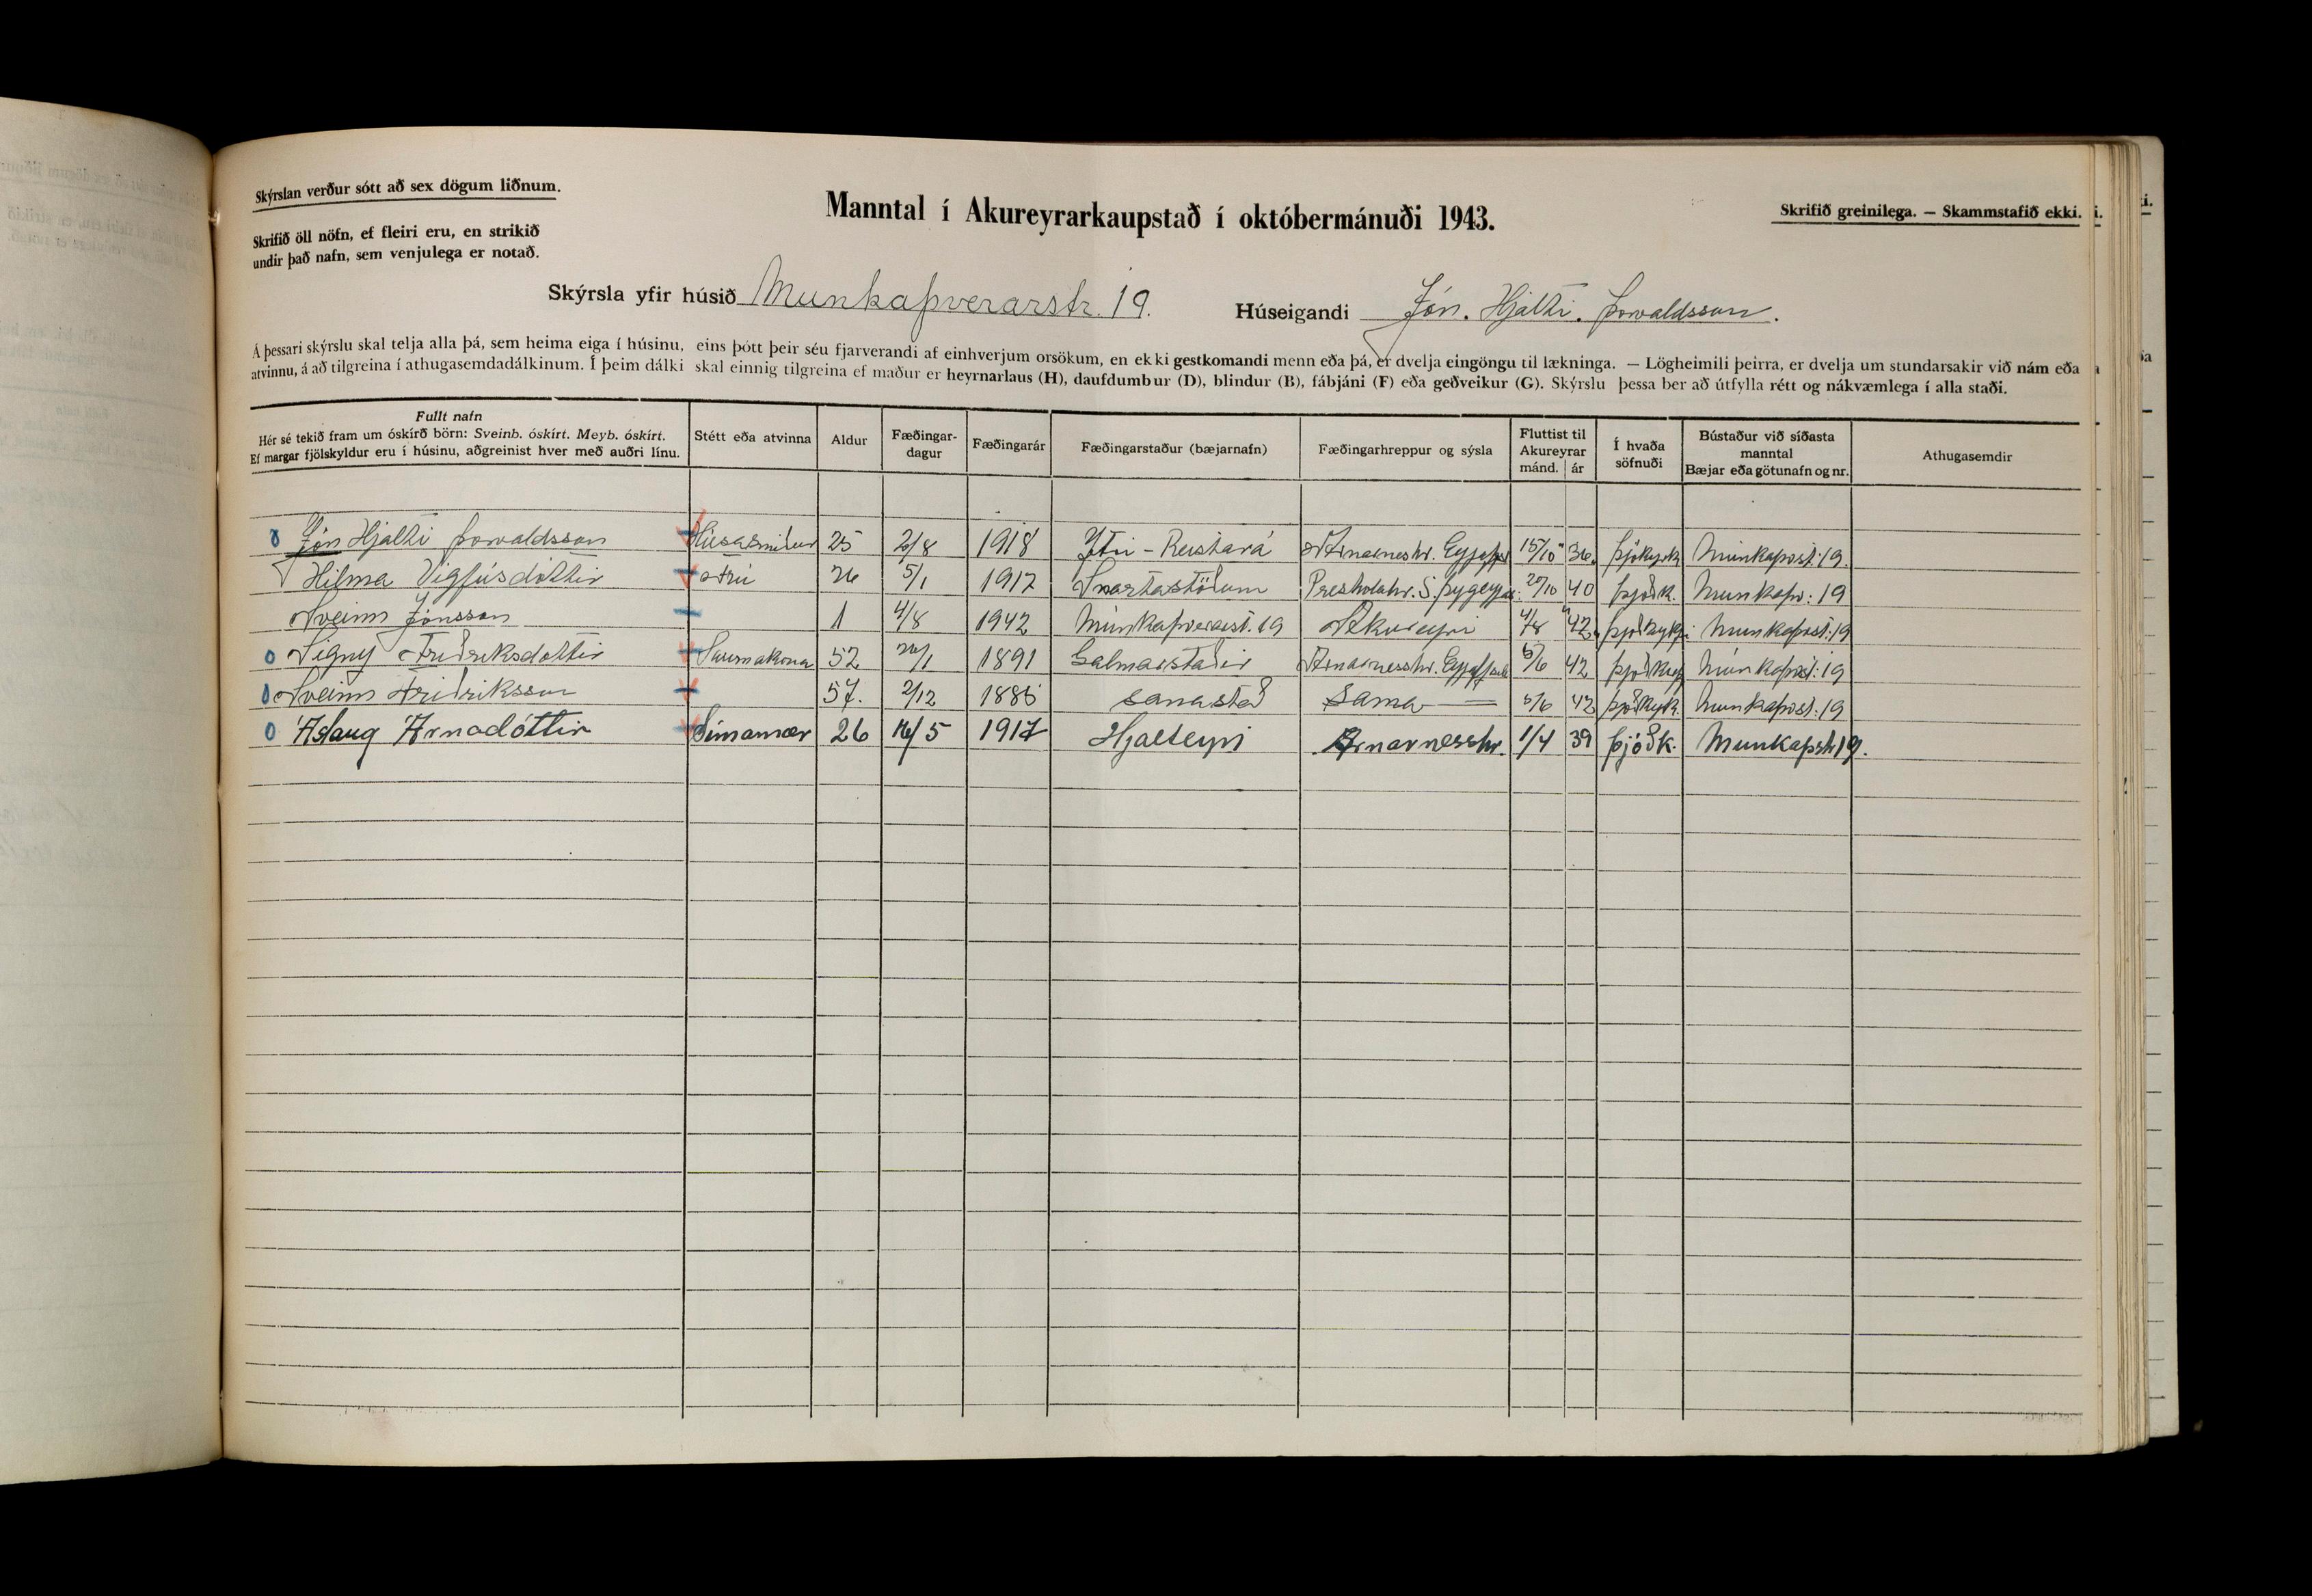 Skýrslan verður sótt að sex dögum liðnum.
Manntal í Akureyrarkaupstað í októbermánuði 1943.
Skrifið greinilega. — Skammstafið ekki.
Skrifið öll nöfn, ef fleiri eru, en strikið
undir það nafn, sem venjulega er notað.
Skýrsla yfir húsið Munkaþverarstr. 19.
Húseigandi Jón. Hjalti. Þorvaldsson.
Á þessari skýrslu skal telja alla þá, sem heima eiga í húsinu, eins þótt þeir séu fjarverandi af einhverjum orsökum, en ekki gestkomandi menn eða þá, er dvelja eingöngu til lækninga. — Lögheimili þeirra, er dvelja um stundarsakir við nám eða
atvinnu, á að tilgreina í athugasemdadálkinum. Í þeim dálki skal einnig tilgreina ef maður er heyrnarlaus (H), daufdumbur (D), blindur (B), fábjáni (F) eða geðveikur (G). Skýrslu þessa ber að útfylla rétt og nákvæmlega í alla staði.
Fullt nafn
Hér sé tekið fram um óskírð börn: Sveinb. óskírt. Meyb. óskírt.
Ef margar fjölskyldur eru í húsinu, aðgreinist hver með auðri línu.
Stétt eða atvinna
Aldur
Fæðingar-
dagur
Fæðingarár
Fæðingarstaður (bæjarnafn)
Fæðingarhreppur og sýsla
Fluttist til
Akureyrar
mánd. ár
Í hvaða
söfnuði
Bústaður við síðasta
manntal
Bæjar eða götunafn og nr.
Athugasemdir
Jón Hjalti Þorvaldsson Húsasmiður 25 1918 Ytri-Reistará Arnarneshr. 15/10 36. Þjóðkyrk Munkaþvst: 19.
Hilma Vigfúsdóttir Frú 26 5/1 1917 Snartastöðum Presthólahr. 20/10 40 Þjóðk. Munkaþv: 19
Sveinn Jónsson 1 4/8 1942 Munkaþverárst. 19 Akureyri 4/8 42 Munkaþvst: 19
Signý Friðriksdóttir Saumakona 52 1891 Galmarstaðir Arnarnesshr. 5/6 42 Munkaþvst: 19
Sveinn Friðriksson 57. 2/12 1886 samastað Sama 5/6 42 Þjóðkyrk. Munkaþvst: 19
Áslaug Árnadóttir Símamær 26 16/5 1917 Hjalteyri Arnarnesshr. 1/4 39 Þjóðk. Munkaþstr 19.